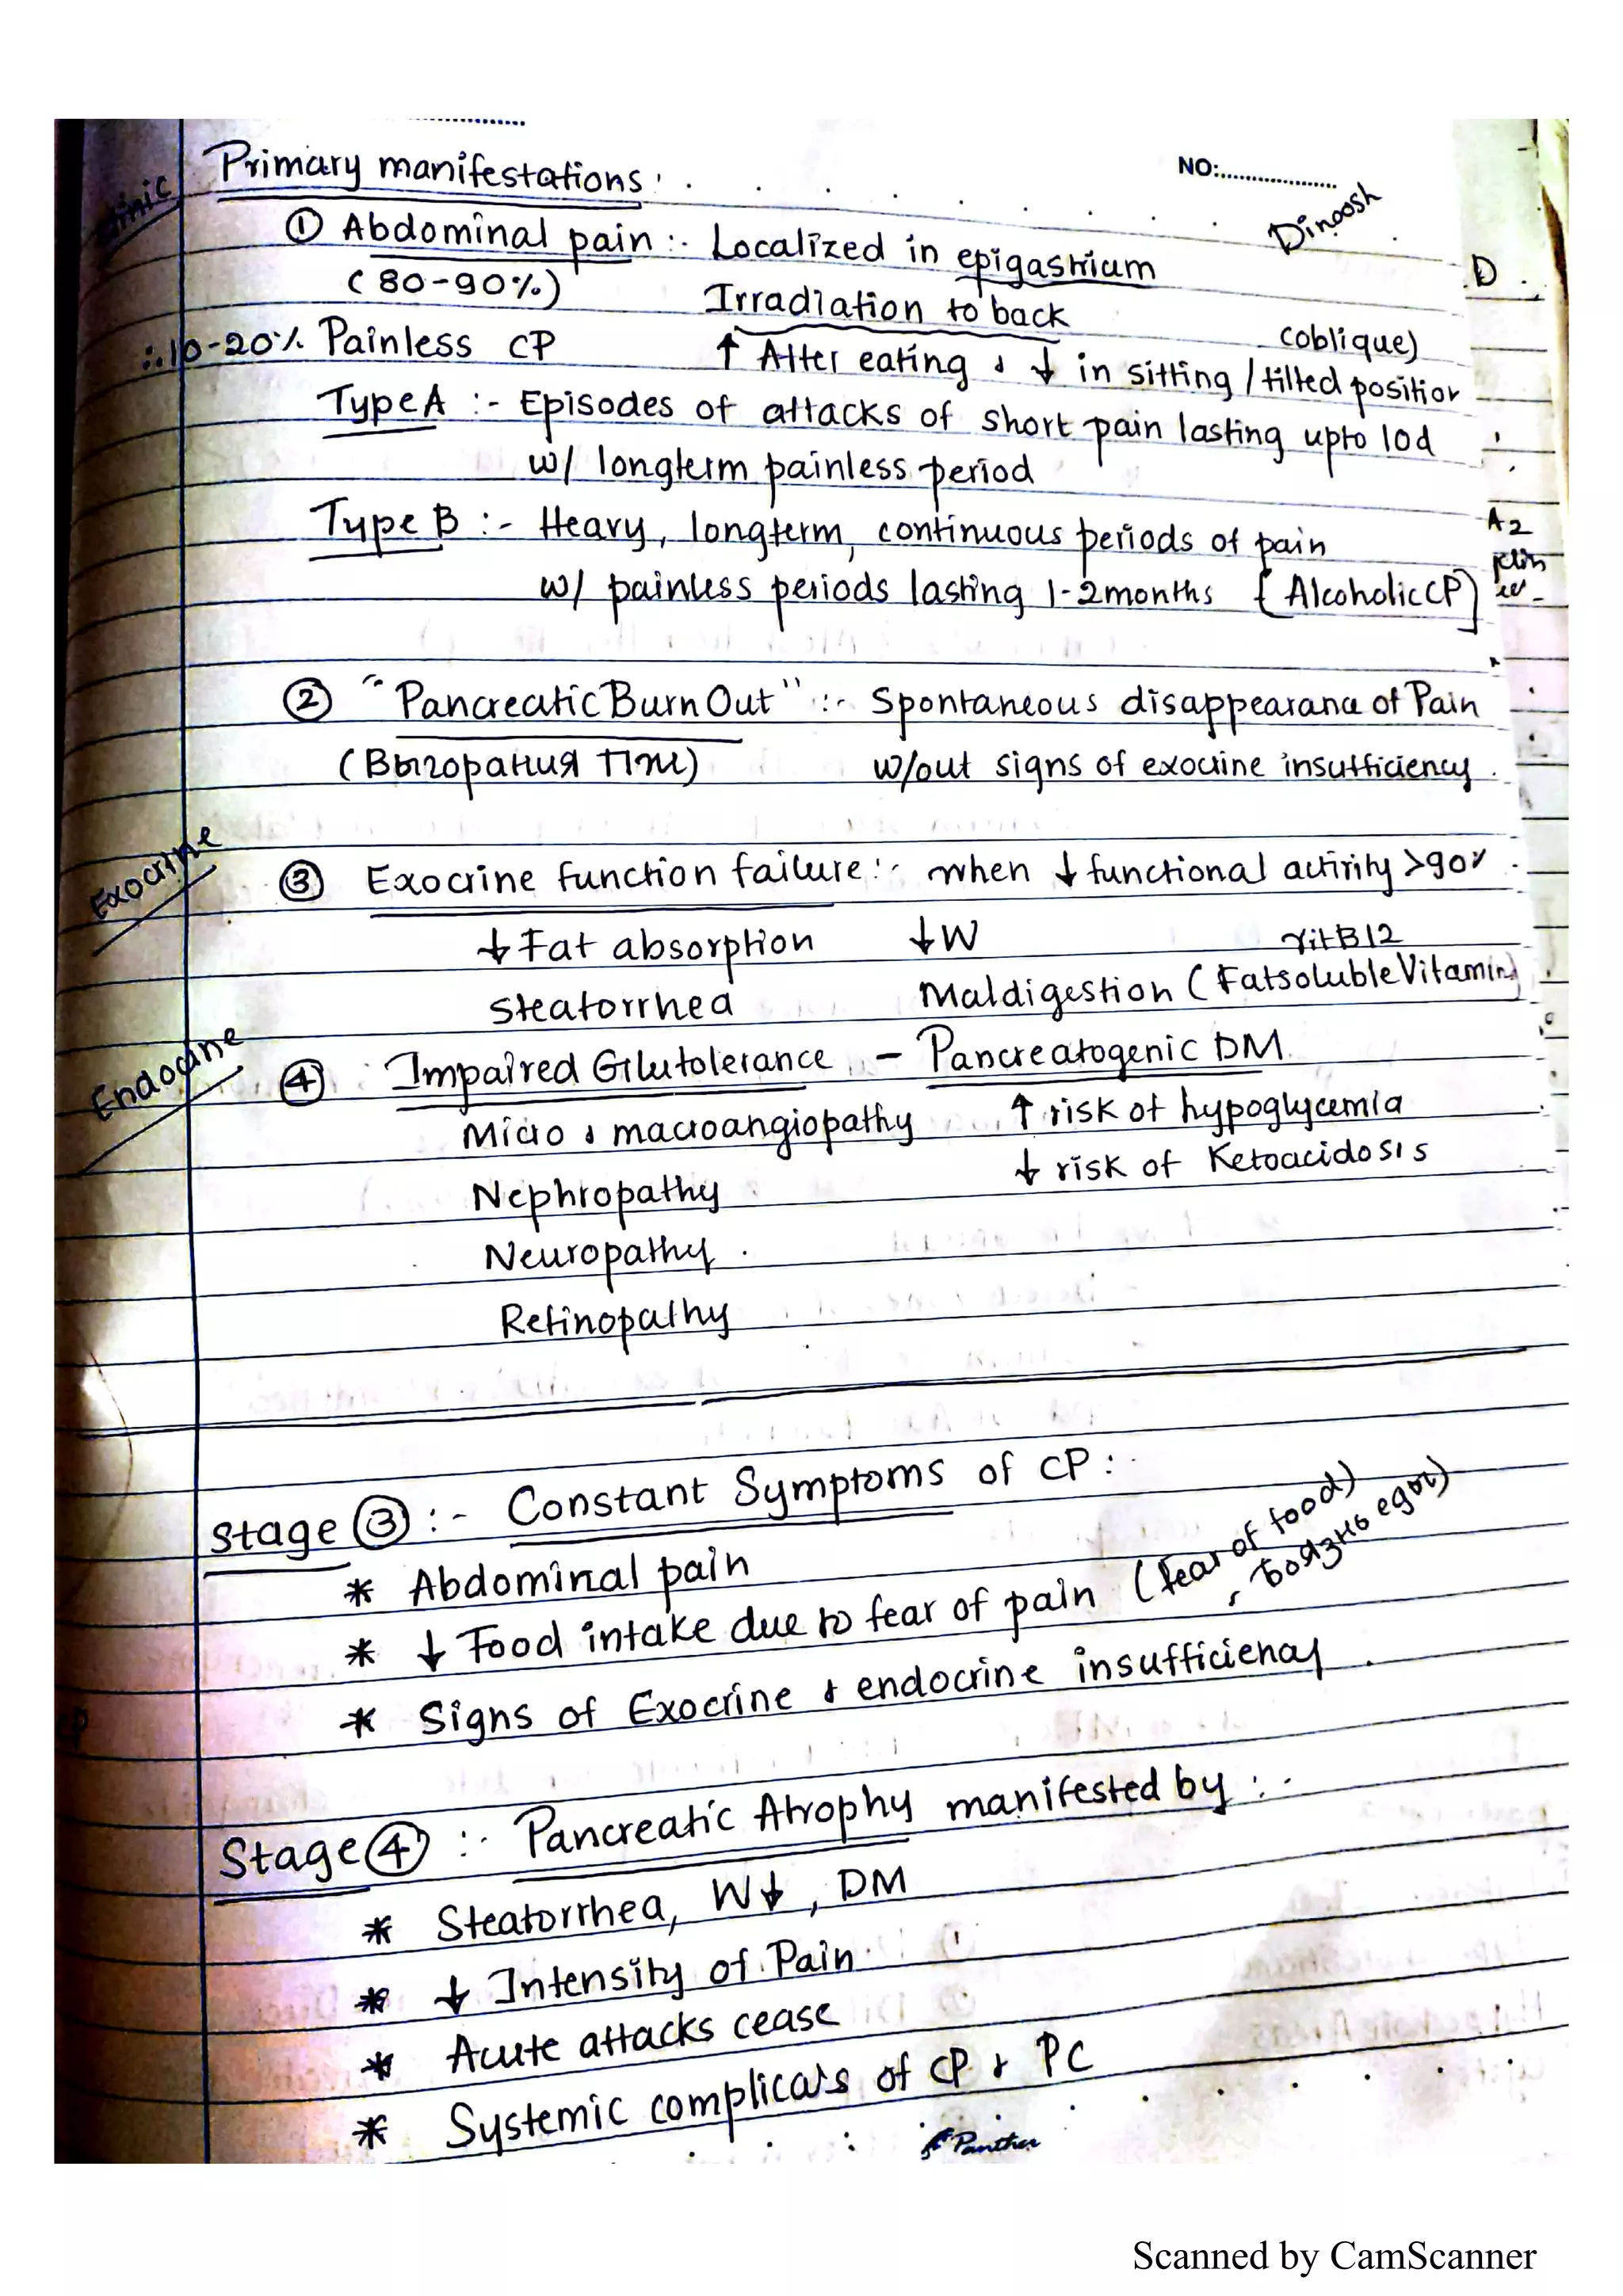 Primary manifestations :
NO:....................
Dinoosh
① Abdominal pain :- Localized in epigastrium
(80-90%) Irradiation to back
∴ 10-20% Painless CP ↑ After eating & ↓ in sitting / tilted position
(oblique)
Type A :- Episodes of attacks of short pain lasting upto 10d
w/ longterm painless period
Type B :- Heavy, longterm, continuous periods of pain
w/ painless periods lasting 1-2 months [Alcoholic CP]
② "Pancreatic Burn Out" :- Spontaneous disappearance of Pain
(Выгорания ПЖ) w/out signs of exocrine insufficiency.
Exocrine
③ Exocrine function failure :- when ↓ functional activity >90%
↓ Fat absorption ↓W vit B12
Steatorrhea Maldigestion (Fatsoluble Vitamin)
Endocrine
④ Impaired Glutolerance - Pancreatogenic DM
Micro & macroangiopathy ↑ risk of hypoglycemia
Nephropathy ↓ risk of Ketoacidosis
Neuropathy.
Retinopathy
Stage ③ :- Constant Symptoms of CP :-
* Abdominal pain
* ↓ Food intake due to fear of pain (fear of food)
боязнь еды)
* Signs of Exocrine & endocrine insufficiency.
Stage ④ :- Pancreatic Atrophy manifested by :-
* Steatorrhea, W↓, DM
* ↓ Intensity of Pain
* Acute attacks cease
* Systemic complica's of CP & PC
Panther
Scanned by CamScanner